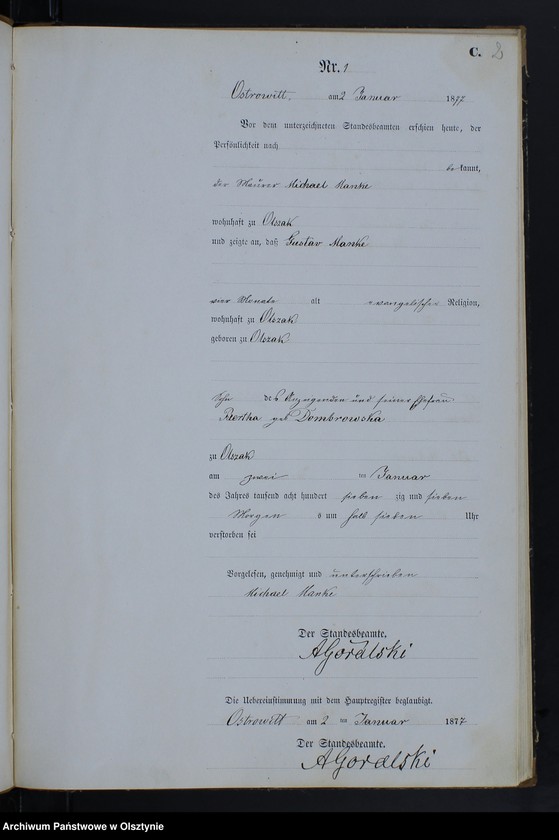 C. 2
Nr. 1
Ostrowitt, am 2 Januar 1877
Vor dem unterzeichneten Standesbeamten erschien heute, der
Persönlichkeit nach
be kannt,
der Maurer Michael Manke
wohnhaft zu Olszak
und zeigte an, daß Gustav Manke
vier Monate alt evangelischer Religion,
wohnhaft zu Olszak
geboren zu Olszak
Sohn des Anzeigenden und seiner Ehefrau
Bertha geb Dombrowska
zu Olszak
am zwei ten Januar
des Jahres tausend acht hundert sieben zig und sieben
Morgen s um halb sieben Uhr
verstorben sei
Vorgelesen, genehmigt und unterschrieben
Michael Manke
Der Standesbeamte.
AGoralski
Die Uebereinstimmung mit dem Hauptregister beglaubigt.
Ostrowitt am 2 ten Januar 1877
Der Standesbeamte.
AGoralski
Archiwum Państwowe w Olsztynie